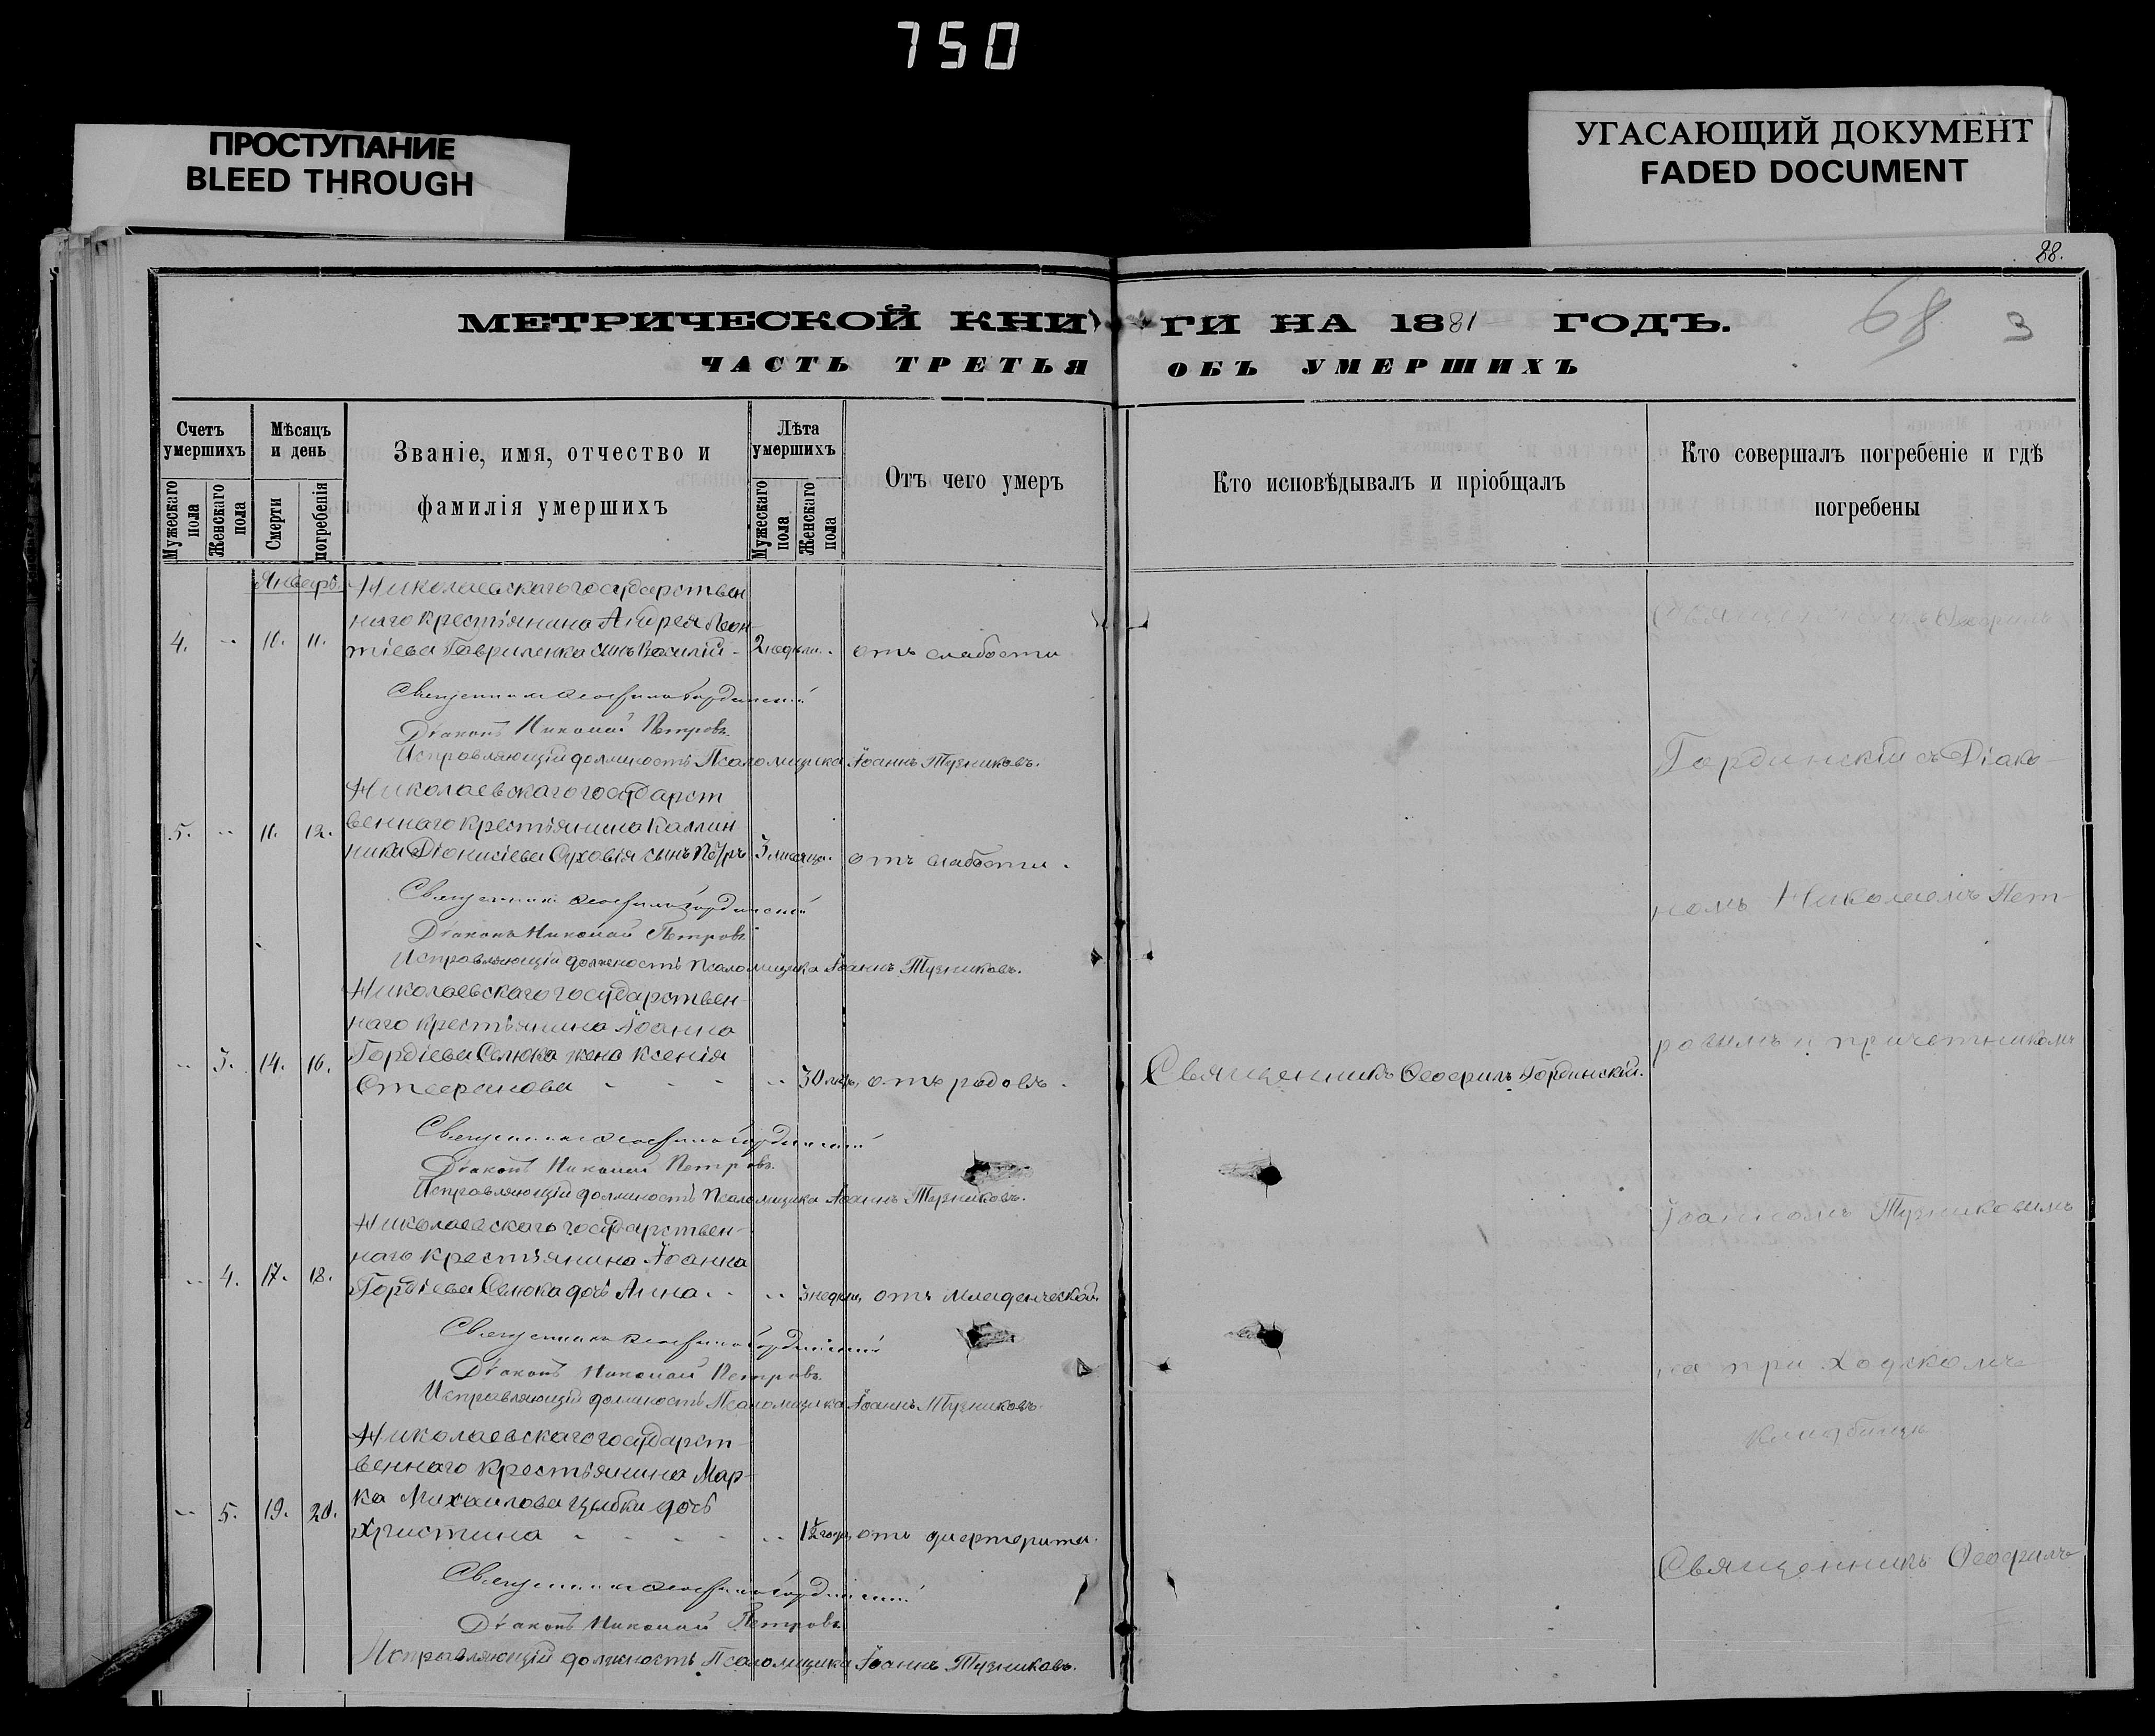 750
ПРОСТУПАНИЕ
BLEED THROUGH
УГАСАЮЩИЙ ДОКУМЕНТ
FADED DOCUMENT
88.
68 3
МЕТРИЧЕСКОЙ КНИГИ НА 1881 ГОДЪ.
ЧАСТЬ ТРЕТЬЯ ОБЪ УМЕРШИХЪ
Счетъ умершихъ
Мужескаго пола
Женскаго пола
Мѣсяцъ и день
Смерти
погребенія
Званіе, имя, отчество и
фамилія умершихъ
Лѣта умершихъ
Мужескаго пола
Женскаго пола
Отъ чего умеръ
Кто исповѣдывалъ и пріобщалъ
Кто совершалъ погребеніе и гдѣ
погребены
Январь.
Николаевскаго государствен
наго крестьянина Андрея Леон-
4. -- 10. 11. тіева Гавриленка сынъ Василій - 2 недѣли. отъ слабости
Священникъ Ѳеофилъ Гординскій
Діаконъ Николай Петровъ.
Исправляющій должность Псаломщика Іоаннъ Тузниковъ.
Николаевскаго государст
5. -- 11. 12. веннаго крестьянина Каллин
ника Діонисіева Суховія сынъ Петръ 3 мѣсяца. отъ слабости.
Священникъ Ѳеофилъ Гординскій
Діаконъ Николай Петровъ
Исправляющій должность Псаломщика Іоаннъ Тузниковъ.
Николаевскаго государствен-
наго крестьянина Іоанна
-- 3. 14. 16. Гордіева Селюка жена Ксенія
Стефанова - - - - -- 30 лѣтъ, отъ родовъ. Священникъ Ѳеофилъ Гординскій.
Священникъ Ѳеофилъ Гординскій
Діаконъ Николай Петровъ.
Исправляющій должность Псаломщика Іоаннъ Тузниковъ.
Николаевскаго государствен-
наго крестьянина Іоанна
-- 4. 17. 18. Гордіева Селюка дочь Анна. -- -- 3 недѣли, отъ младенческой.
Священникъ Ѳеофилъ Гординскій
Діаконъ Николай Петровъ.
Исправляющій должность Псаломщика Іоаннъ Тузниковъ.
Николаевскаго государст-
веннаго крестьянина Мар-
ка Михаилова Цыбки дочь
-- 5. 19. 20. Христина - - - - -- 1½ года, отъ дифтерита.
Священникъ Ѳеофилъ Гординскій
Діаконъ Николай Петровъ.
Исправляющій должность Псаломщика Іоаннъ Тузниковъ.
Священникъ Ѳеофилъ
Гординскій съ Діако-
номъ Николаемъ Пет-
ровымъ и причетникомъ
Іоанномъ Тузниковымъ
на при ходскомъ
кладбищѣ
Священникъ Ѳеофилъ